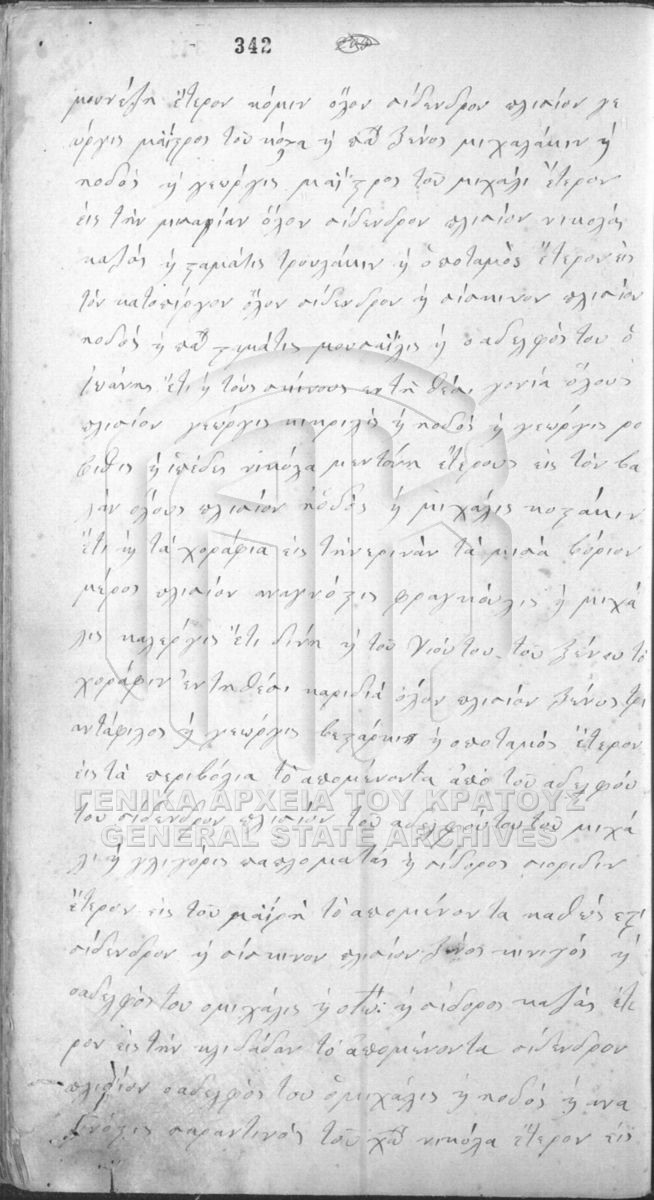 342
μουνέζη έτερον κόμιν όλον σίδενδρον πλισίον γε
όργις μαΐζρος του κόχα ή παπ ξένος μιχαλάκιν ή
ποδός ή γεώργις μαΐζρος του μιχάλι έτερον
εις την μισαρίαν όλον σίδενδρον πλισίον νικολάς
καζάς ή σταμάτις τρουλάκιν ή ο ποταμός έτερον εις
τον κατοπίργον όλον σίδενδρον ή σίσκινον πλισίον
ποδός ή παπ σταμάτις μουσαΐλις ή ο αδελφός του ο
ιωάνης έτι ή τους σκίνους εν τη θέσι γονία όλους
πλισίον γεώργις κιπριλής ή ποδός ή γεώργις ρο
βιθις ή πέδες νικόλα μεντόνη έτερους εις τον βα
λάν όλους πλισίον ποδός ή μιχάλις κοζάκιν
έτι ή τα χοράφια εις την ερινάν τα μισά βόριον
μέρος πλισίον αναγνόστις φραγκούλις ή μιχά
λις καλέργις έτι δίνη ή του υιού του του ξένου το
χοράφιν εν τη θέσι καριδιά όλον πλισίον ξένος τρι
αντάφιλος ή γεώργις βεζάρκις ή ο ποταμός έτερον
εις τα περιβόλια το απομένοντα από του αδελφού
του σίδενδρον πλισίον του αδελφού του του μιχά
λι ή γλιγόρις παπλοματάς ή σίδορος σιοριδιν
έτερον εις του μαΐρη το απομένοντα καθώς εχι
σίδενδρον ή σίσκινον πλισίον ξένος κινιγός ή
ο αδελφός του ο μιχάλις ή ή σίδορος καζάς έτε
ρον εις την κλιδάδαν το απομένοντα σίδενδρον
πλισίον ο αδελφός του ο μιχάλις ή ποδός ή ανα
γνόστις σαραντινός του χ νικόλα έτερον εις
ΓΕΝΙΚΑ ΑΡΧΕΙΑ ΤΟΥ ΚΡΑΤΟΥΣ
GENERAL STATE ARCHIVES